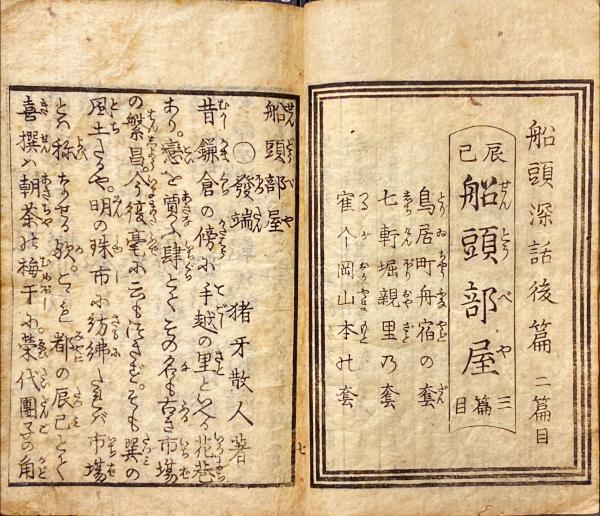 船頭深話後篇 二篇目
辰巳 船頭部屋 三篇目
鳥居町舟宿の套
七軒堀親里乃套
隺个岡山本の套
船頭部屋 猪牙散人著
〇發端
昔鎌倉の傍に手越の里といへる花巷
あり。戀を賣る肆とてその名も古き市場
の繁昌。今後毫に云もつきず。そも巽の
風土たるや。明の珠市に彷彿たれバ市場
とハ称なせる歟。とつと都の辰巳とく
喜撰ハ朝茶の梅干に榮代團子の角
七